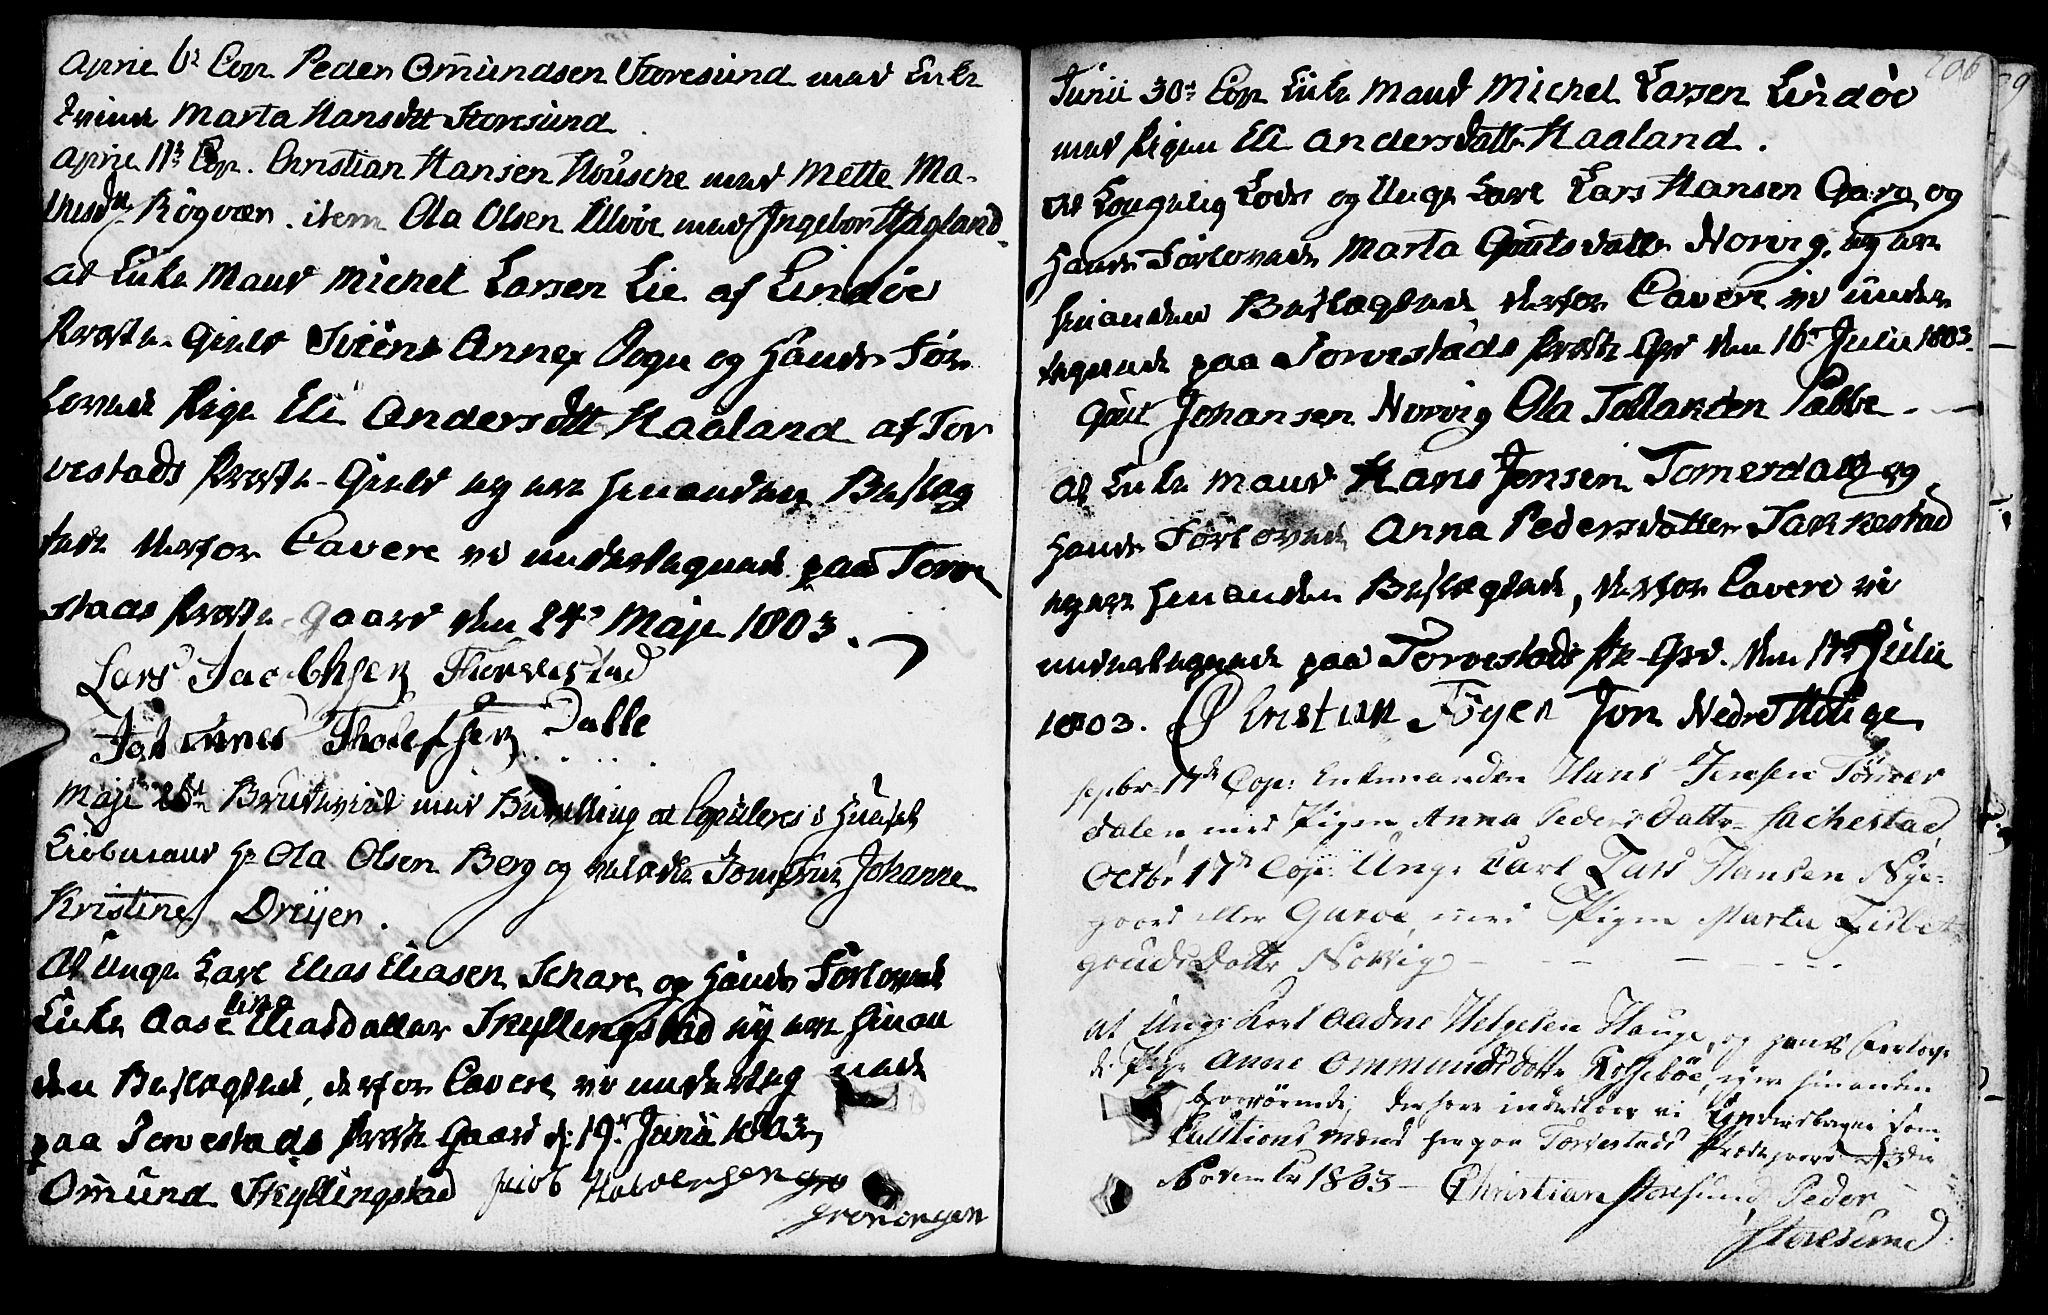 Aprie 6t Cop. Peder Omundsen Storesund med Enke
Qvinde Marta Hansdtt Storesund.
Aprie 11t Cop. Christian Hansen Housche med Mette Ma-
thisdtt Røgvær. item Ola Olsen med Ingebor Hagland.
At Enke Mand Michel Larsen Lie af Lindøe
Præste-Gield Annex Sogn og Hands For
lovede Pige Eli Andersdtt Haaland af Tor
vestads Præste-Gield ey ere hinanden Beslæg
tede derfor Cavere vi undertegnede paa Torve
stads Præste-gaard den 24de Maje 1803.
Lars Jacobhsen Thorvestad
Johannes Dalle
Maje Brudeviet med Bevilling at Copuleres i Huuset
Hr Ola Olsen Berg og Jomfrue Johanne
Kristine Dreyer.
At Unge Karl Elias Eliasen Schare og Hands Forlovede
Enke Aase lina Eliasdatter Skyllingstad ey ere hinan
den Beslægtede, derfor Cavere vi undertegnede
paa Torvestads Præste Gaard d: 19de Junii 1803,
Omund Skyllingstad Jacob
Junii 30t Cop. Enke Mand Michel Larsen Lindøe
med Pigen Eli Andersdatter Haaland.
At Kongelig Lods og Unge Karl Lars Hansen Garø, og
Hands Forlovede Marta Goutsdatter Norvig, ey ere
hinanden Beslægtede derfor Cavere vi under
tegnede paa Torvestads Præste Grd den 16t Julii 1803.
Gout Johansen Norvig Ola
At Enke Mand Hans Jensen Tømerdall og
Hands Forlovede Anna Pedersdatter Sakkestad
ey ere hinanden Beslægtede, derfor Cavere vi
undertegnede paa Torvestads Pr-Grd. den 17t Julii
1803. Christian Føyen Jon Nedre Houge
sepbr 17de Cop: Enkemanden Hans Jensen Tømer
dalen med Pigen Anna Peders Datter Sachestad
Octbr 17de Cop: Unge Karl Lars Hansen Nye-
goord eller Garøe med Pigen Marta Lisbet
Gouds Datter Norvig
At Unge Karl Aadne Helgesen Hauge, og hands Forlove
de Pige Anne Ommundsdatter, eyere hinanden
derfore indestaar vi Undertegnede som
Cautions mænd her paa Torvestads Prestegaard 13de
November 1803 - Christian Storesund Peder
Storesund
206